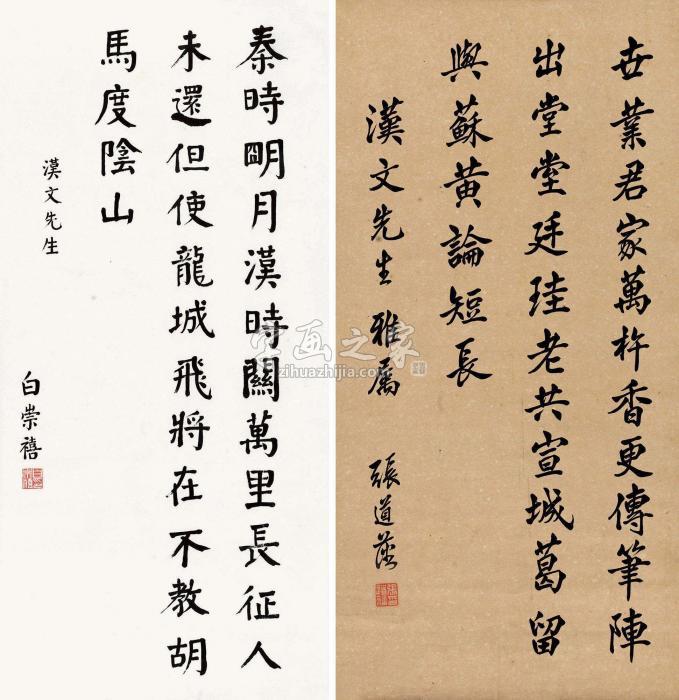 世業君家萬杵香更傳筆陣
出堂堂廷珪老共宣城葛留
與蘇黃論短長
漢文先生雅屬
張道藩
秦時明月漢時關萬里長征人
未還但使龍城飛將在不教胡
馬度陰山
漢文先生
白崇禧
字画之家
zihuazhijia.com